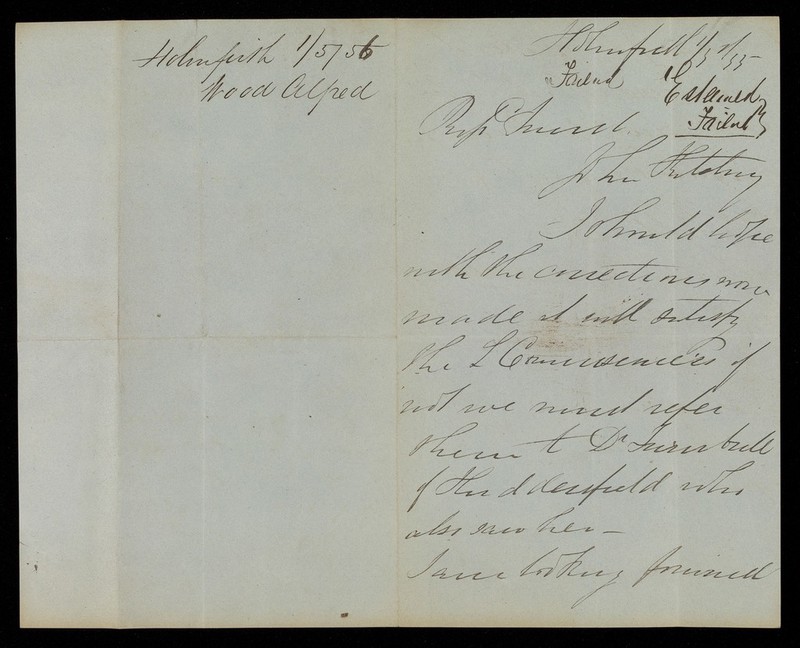 Holmfirth 1/5/56
Wood Alfred
Holmfirth
Friend
Esteemed
Friend
Friend
John Kitching
I should hope
with the corrections now
made it will satisfy
the L Commissioners if
not we must refer
them to Dr Turnbull
of Huddersfield who
also saw her —
I am looking forward